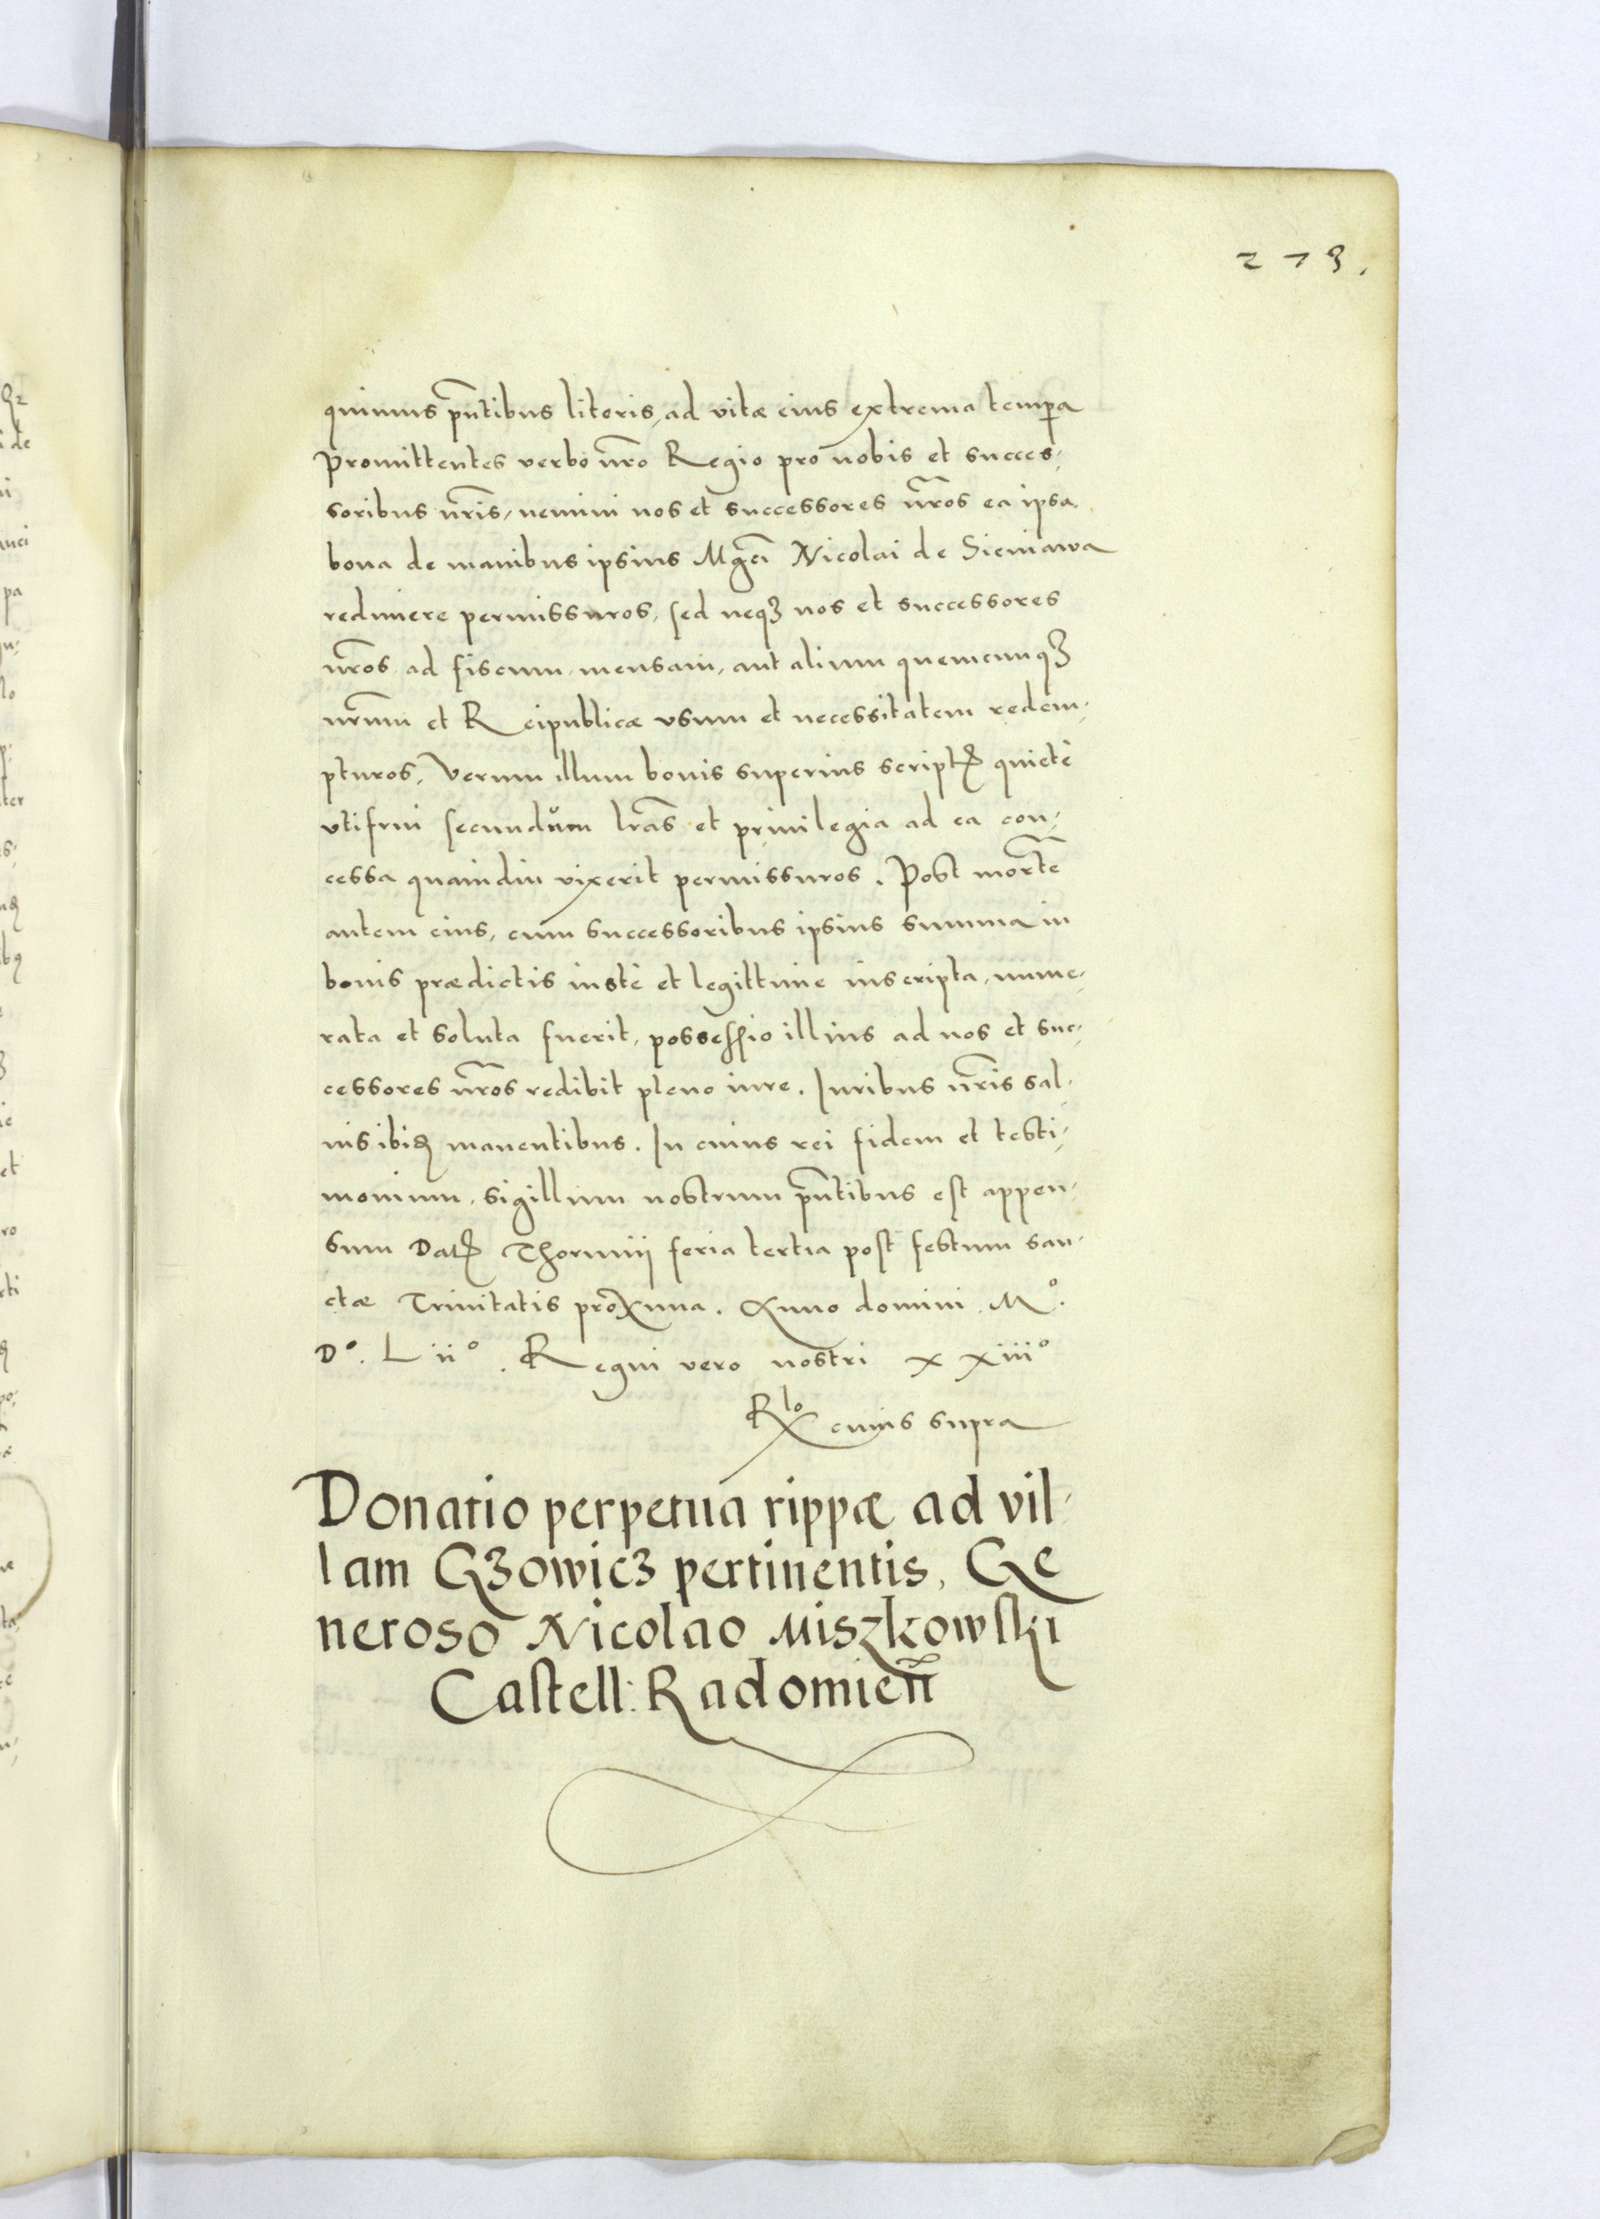 273.
quimus pñtibus literis, ad vitæ eius extrema tempa
Promittentes verbo nr̃o Regio pro nobis et succes-
soribus nr̃is, nemini nos et successores nr̃os ea ipsa
bona de manibus ipsius Mgci Nicolai de Sieniawa
redimere permissuros, sed neqꝫ nos et successores
nr̃os ad fiscum, mensam, aut alium quemcunqꝫ
nrm̃ et Reipublicæ vsum et necessitatem redem-
pturos, Verum illum bonis superius script quietè
vtifrui secundum lrãs et priuilegia ad ea con-
cessa quamdiu vixerit permissuros. Post mortẽ
autem eius, cum successoribus ipsius summa in
bonis prædictis iustè et legittime inscripta, nume-
rata et soluta fuerit, possessio illius ad nos et suc-
cessores nr̃os redibit pleno iure. Iuribus nr̃is sal-
uis ibid manentibus. In cuius rei fidem et testi-
monium, sigillum nostrum pñtibus est appen-
sum Dat Thorunij feria tertia post festum san-
ctæ Trinitatis proxima. Anno domini. Mº.
Dº. Liiº. Regni vero nostri xxiiiº
Rlo cuius supra
Donatio perpetua rippæ ad vil-
lam Gzowicz pertinentis, Ge
neroso Nicolao Miszkowski
Castell: Radomien̄